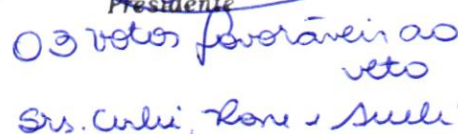 Presidente
03 votos favoráveis ao
veto
Srs. Curlei, Rone e Sueli